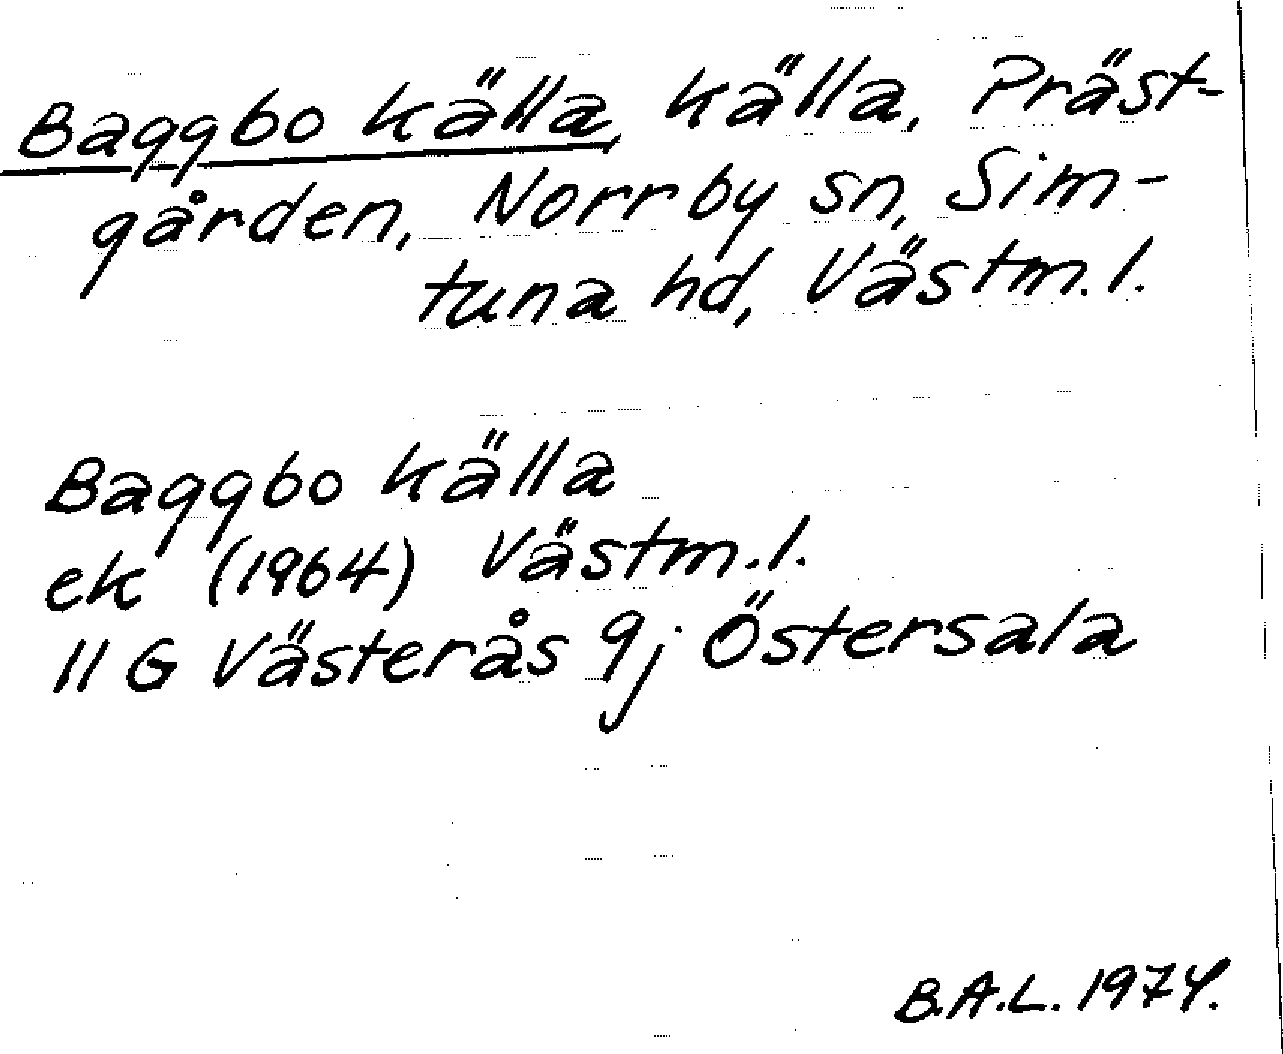 Baggbo källa, källa, Präst-
gården, Norrby sn, Sim-
tuna hd, Västm.l.
Baggbo källa
ek (1964) Västm.l.
11 G Västerås 9j Östersala
B.A.L. 1974.